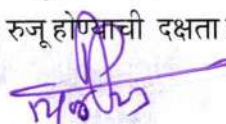 रुजू होण्याची दक्षता